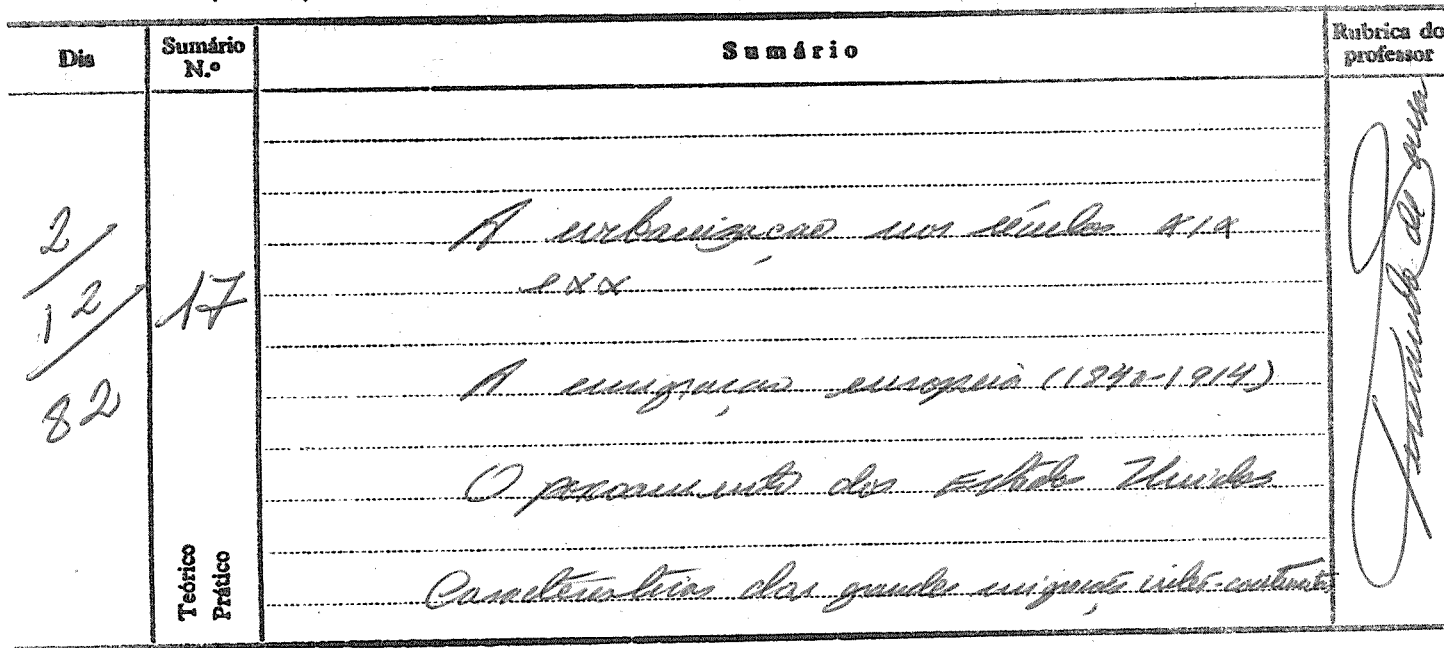 Dia
Sumário N.º
Sumário
Rubrica do professor
2/12/82
17
Teórico
Prático
A urbanização nos séculos XIX
e XX
A emigração europeia (1840-1914)
O povoamento dos Estados Unidos
Características das grandes migrações inter-continentais
Fernando de Sousa